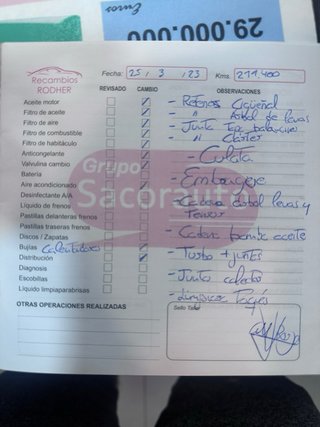 29.000.000
Euros
Recambios
RODHER
Fecha: 25 / 3 / 23 Kms. 211.400
REVISADO CAMBIO OBSERVACIONES
Aceite motor
Filtro de aceite
Filtro de aire
Filtro de combustible
Filtro de habitáculo
Anticongelante
Valvulina cambio
Batería
Aire acondicionado
Desinfectante A/A
Líquido de frenos
Pastillas delanteras frenos
Pastillas traseras frenos
Discos / Zapatas
Bujías Calentadores
Distribución
Diagnosis
Escobillas
Líquido limpiaparabrisas
- Retenes Cigüeñal
- " Arbol de levas
- Junta Tapa balancines
- " Cárter
- Culata
- Embrague
- Cadena arbol levas y
Tensor
- Cadena bomba aceite
- Turbo + juntas
- Junta colector
Grupo
Sacorauto
OTRAS OPERACIONES REALIZADAS
Sello Taller